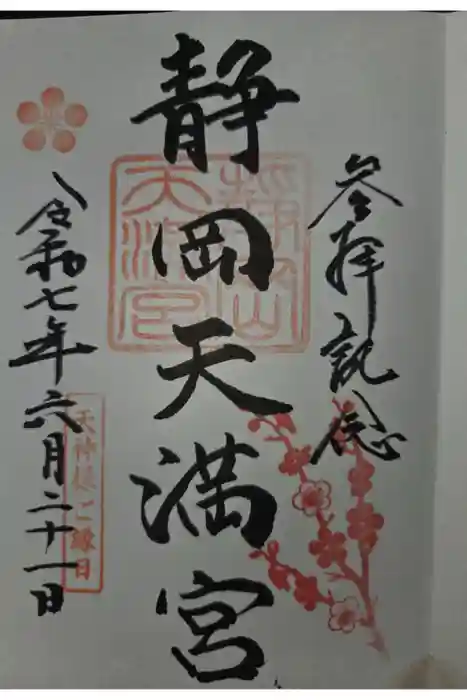 参拝記念
静岡天満宮
静岡天満宮
令和七年六月二十一日
天神様ご縁日